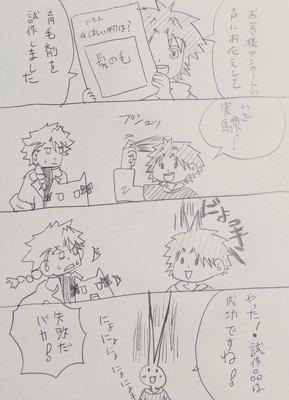 お客様アンケートの
声にお応えして
アンケート
Qほしい物は？
髪の毛
育毛剤を
試作しました
いざ
実験!
プシューッ
にょっき
やった!試作品は
成功ですね!
にょにょにょにょにょ
失敗だ
バカ!